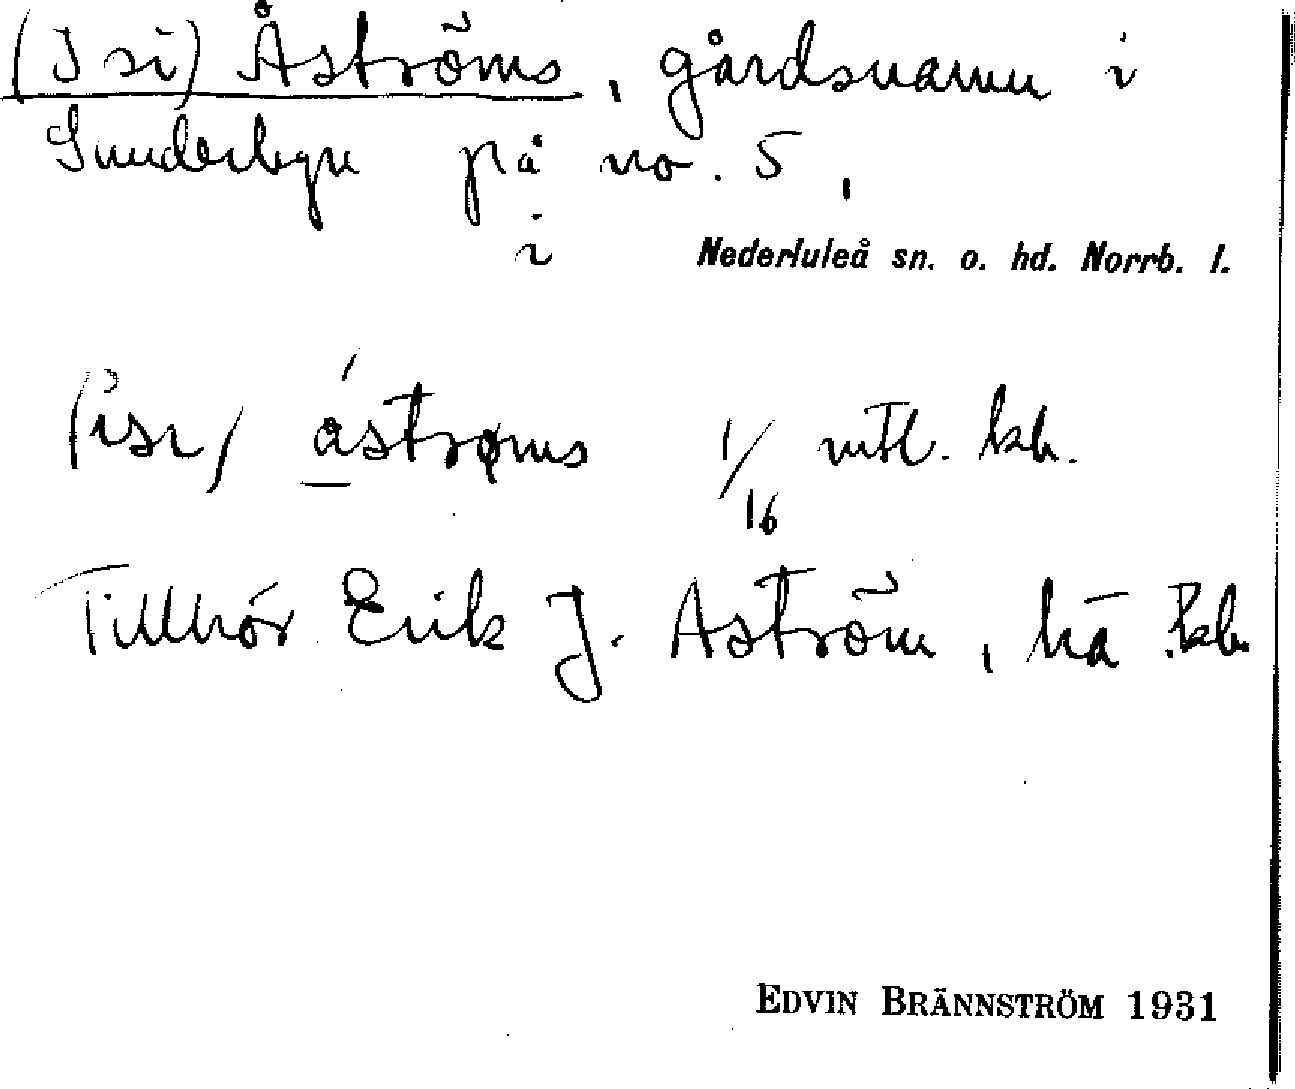 (I si) Åströms, gårdsnamn i
Sunderbyn på no. 5,
i Nederluleå sn. o. hd. Norrb. l.
(isı) åstrøms 1/16 mtl. kb.
Tillhör Erik J. Åström, hä kb.
EDVIN BRÄNNSTRÖM 1931